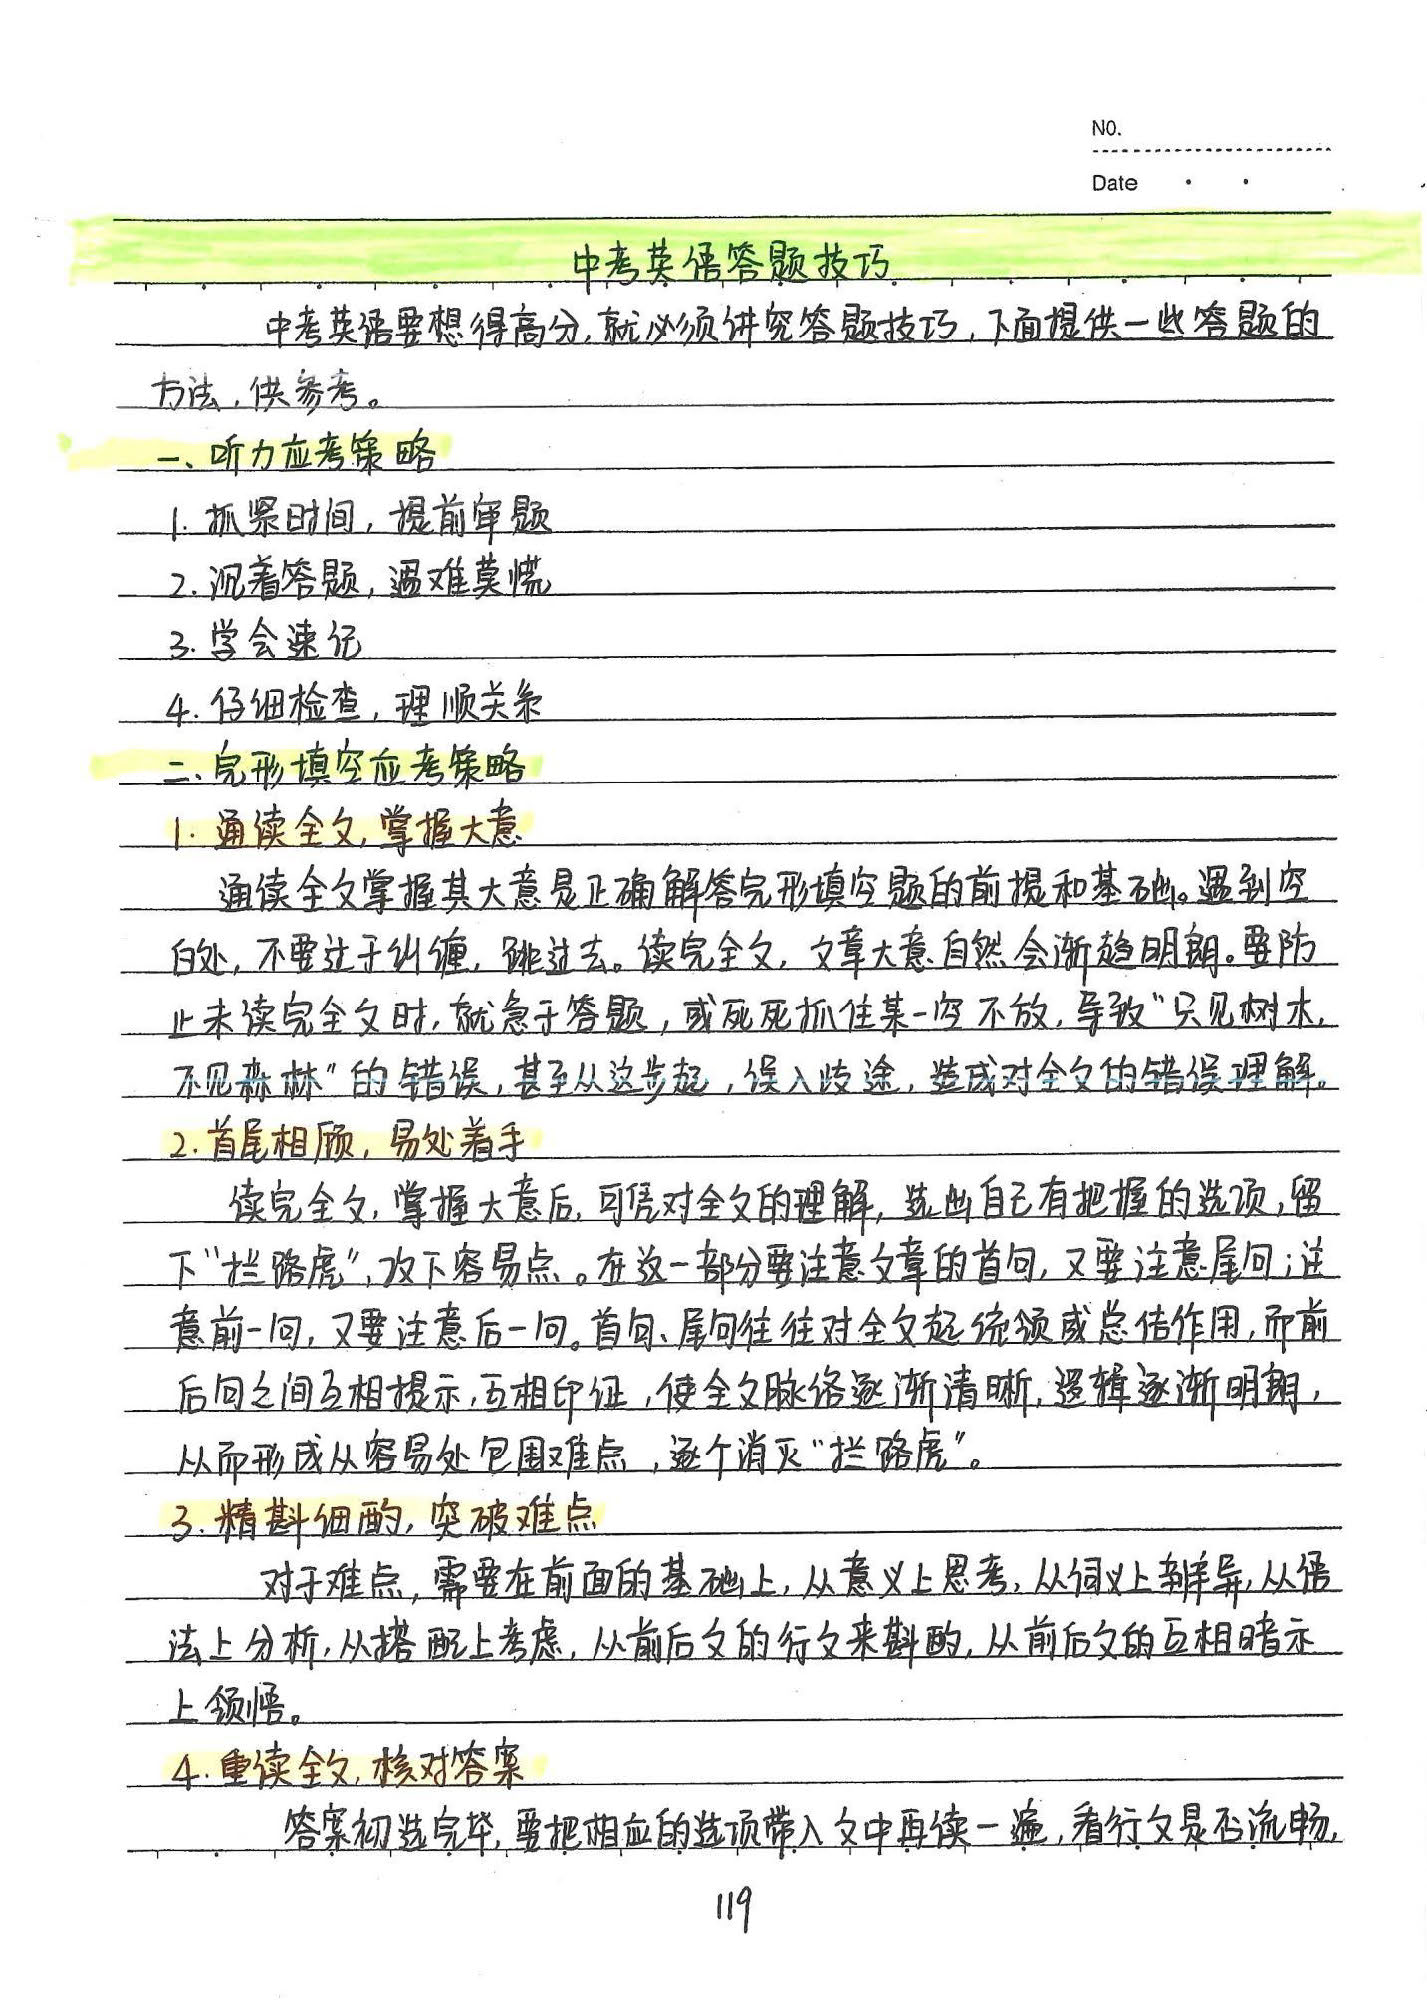 NO.
Date
中考英语答题技巧
中考英语要想得高分,就必须讲究答题技巧,下面提供一些答题的
方法,供参考。
一、听力应考策略
1. 抓紧时间,提前审题
2. 沉着答题,遇难莫慌
3. 学会速记
4. 仔细检查,理顺关系
二、完形填空应考策略
1. 通读全文,掌握大意
通读全文掌握其大意是正确解答完形填空题的前提和基础。遇到空
白处,不要过于纠缠,跳过去。读完全文,文章大意自然会渐趋明朗。要防
止未读完全文时,就急于答题,或死死抓住某一空不放,导致“只见树木,
不见森林”的错误,甚至从这步起,误入歧途,造成对全文的错误理解。
2. 首尾相顾,易处着手
读完全文,掌握大意后,可凭对全文的理解,选出自己有把握的选项,留
下“拦路虎”,攻下容易点。在这一部分要注意文章的首句,又要注意尾句;注
意前一句,又要注意后一句。首句、尾句往往对全文起统领或总结作用,而前
后句之间互相提示,互相印证,使全文脉络逐渐清晰,逻辑逐渐明朗,
从而形成从容易处包围难点,逐个消灭“拦路虎”。
3. 精斟细酌,突破难点
对于难点,需要在前面的基础上,从意义上思考,从词义上辨异,从语
法上分析,从搭配上考虑,从前后文的行文来斟酌,从前后文的互相暗示
上领悟。
4. 重读全文,核对答案
答案初选完毕,要把相应的选项带入文中再读一遍,看行文是否流畅,
119